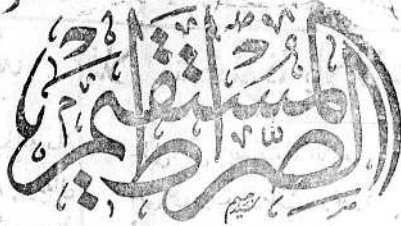 الصراط المستقیم